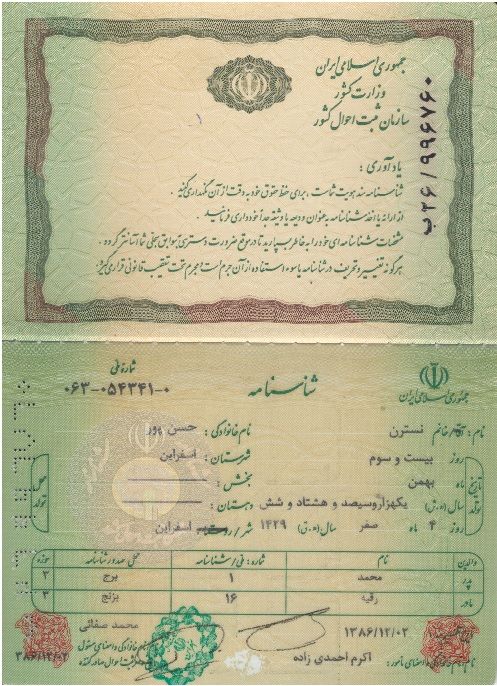 جمهوری اسلامی ایران
وزارت کشور
سازمان ثبت احوال کشور
ب۲۶/۹۹۶۷۶۰
۱
یادآوری :
شناسنامه سند هویت شماست ، برای حفظ حقوق خود به دقت از آن نگهداری کنید .
از ارائه یا اخذ شناسنامه به عنوان ودیعه یا وثیقه جداً خودداری فرمائید .
مشخصات شناسنامه ای خود را به خاطر بسپارید تا در موقع ضرورت دسترسی به سوابق سجلی شما آسانتر گردد .
هرگونه تغییر و تحریف در شناسنامه یا سوء استفاده از آن جرم است و مجرم تحت تعقیب قانونی قرار می گیرد
جمهوری اسلامی ایران
شناسنامه
شماره ملی
۰۶۳-۰۵۴۳۴۱-۰
نام : آقا/خانم نسترن نام خانوادگی : حسن پور
روز بیست و سوم شهرستان : اسفراین
تاریخ تولد
ماه بهمن بخش :
محل تولد
سال (ه.ش) یکهزاروسیصد و هشتاد و شش دهستان :
روز ۴ ماه صفر سال (ه.ق) ۱۴۲۹ شهر/روستا : اسفراین
والدین نام شماره : ملی/شناسنامه محل صدور شناسنامه حوزه
پدر محمد ۱ برج ۳
مادر رقیه ۱۶ بزنج ۳
۱۳۸۶/۱۲/۰۲
محمد صفائی
نام و نام خانوادگی و امضای مأمور : اکرم احمدی زاده
۱۳۸۶/۱۲/۰۲